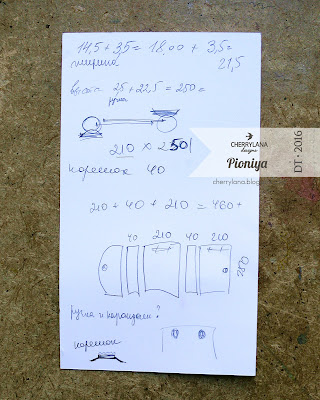 14,5 + 3,5 = 18,00 + 3,5 =
ширина 21,5
25 + 22,5 = 250 =
ручка
210 × 250
корешок 40
CHERRYLANA
designs
Pioniya
DT • 2016
cherrylana.blog
210 + 40 + 210 = 460 +
40 210 40 210
250
ручка и карандаш?
корешок